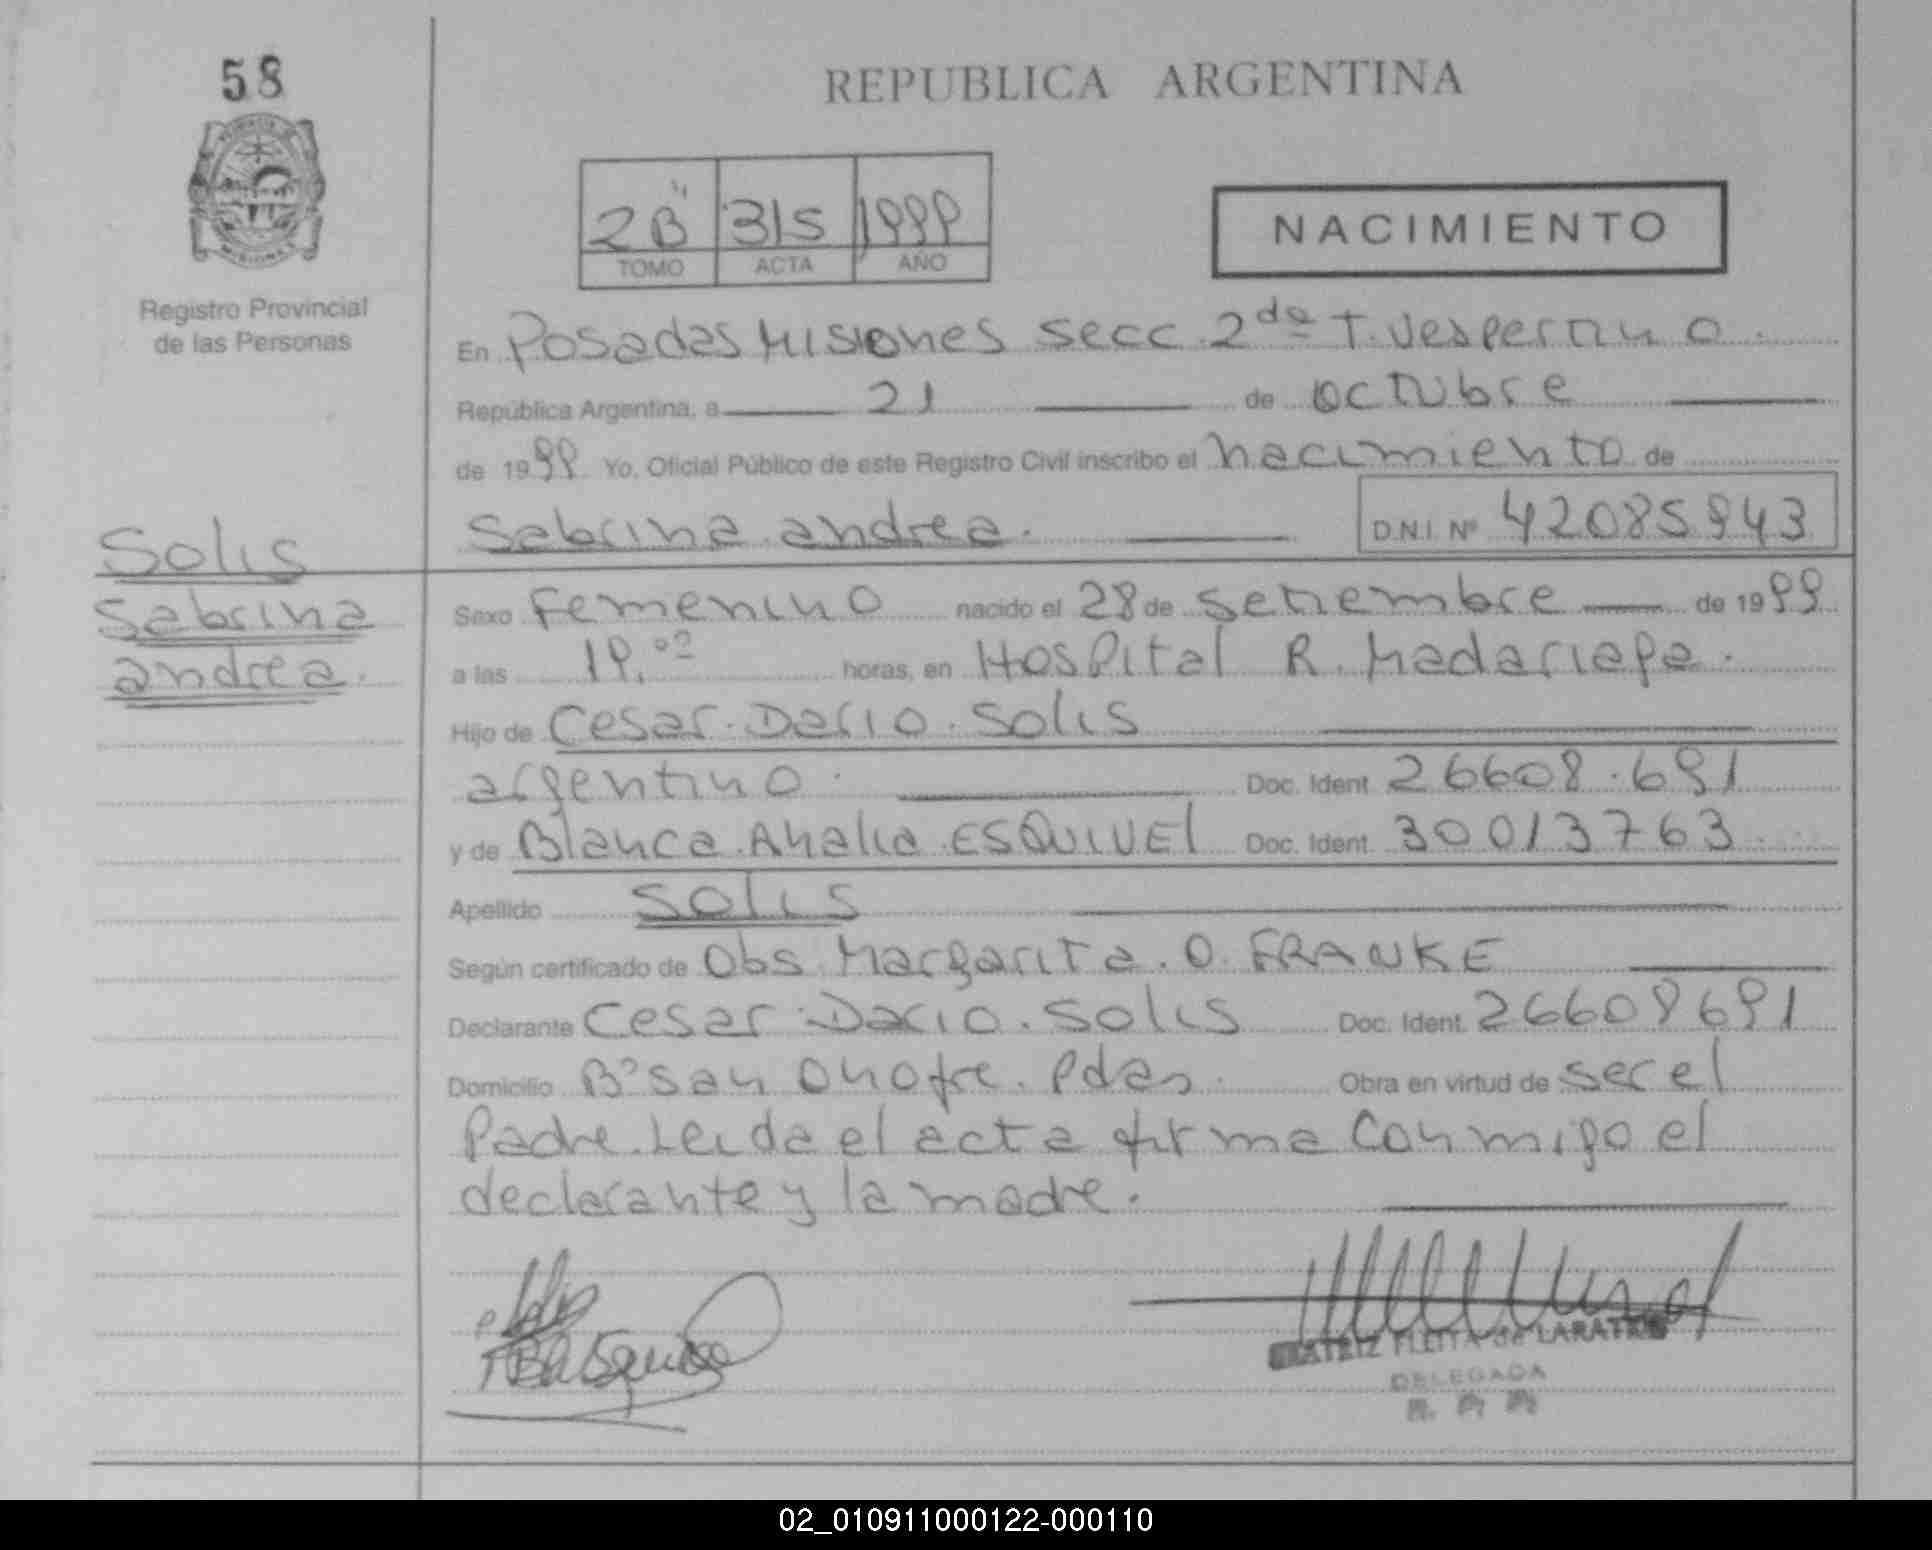 58
REPUBLICA ARGENTINA
2B" 315 1999
TOMO ACTA AÑO
NACIMIENTO
Registro Provincial
de las Personas
En Posadas Misiones secc. 2da T. Vespertino.
República Argentina, a 21 de octubre
de 1999 Yo, Oficial Público de este Registro Civil inscribo el nacimiento de
Sabrina andrea. D.N.I. Nº 42085943
Solis
Sabrina
andrea.
Sexo Femenino nacido el 28 de setiembre de 1999
a las 19.00 horas, en Hospital R. Madariaga.
Hijo de Cesar Dario Solis
argentino. Doc. Ident. 26608.691
y de Blanca Analia ESQUIVEl Doc. Ident. 30013763
Apellido Solis
Según certificado de Obs. Margarita. O. FRANKE
Declarante Cesar Dario. Solis Doc. Ident. 26608691
Domicilio Bº San Onofre. Pdas. Obra en virtud de ser el
Padre. Leida el acta firma conmigo el
declarante y la madre.
FLEITA de
DELEGADA
02_010911000122-000110